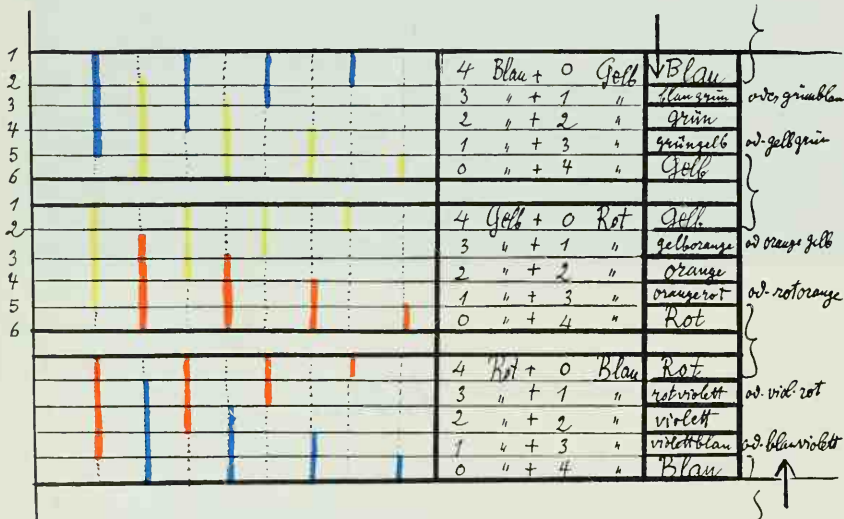 1
4 Blau + 0 Gelb Blau
2
3 " + 1 " blaugrün oder grünblau
3
2 " + 2 " grün
4
1 " + 3 " grüngelb od. gelbgrün
5
0 " + 4 " Gelb
6
1
4 Gelb + 0 Rot Gelb
2
3 " + 1 " gelborange od orange gelb
3
2 " + 2 " orange
4
1 " + 3 " orangerot od. rotorange
5
0 " + 4 " Rot
6
4 Rot + 0 Blau Rot
3 " + 1 " rotviolett od. viol. rot
2 " + 2 " violett
1 " + 3 " violettblau od. blauviolett
0 " + 4 " Blau